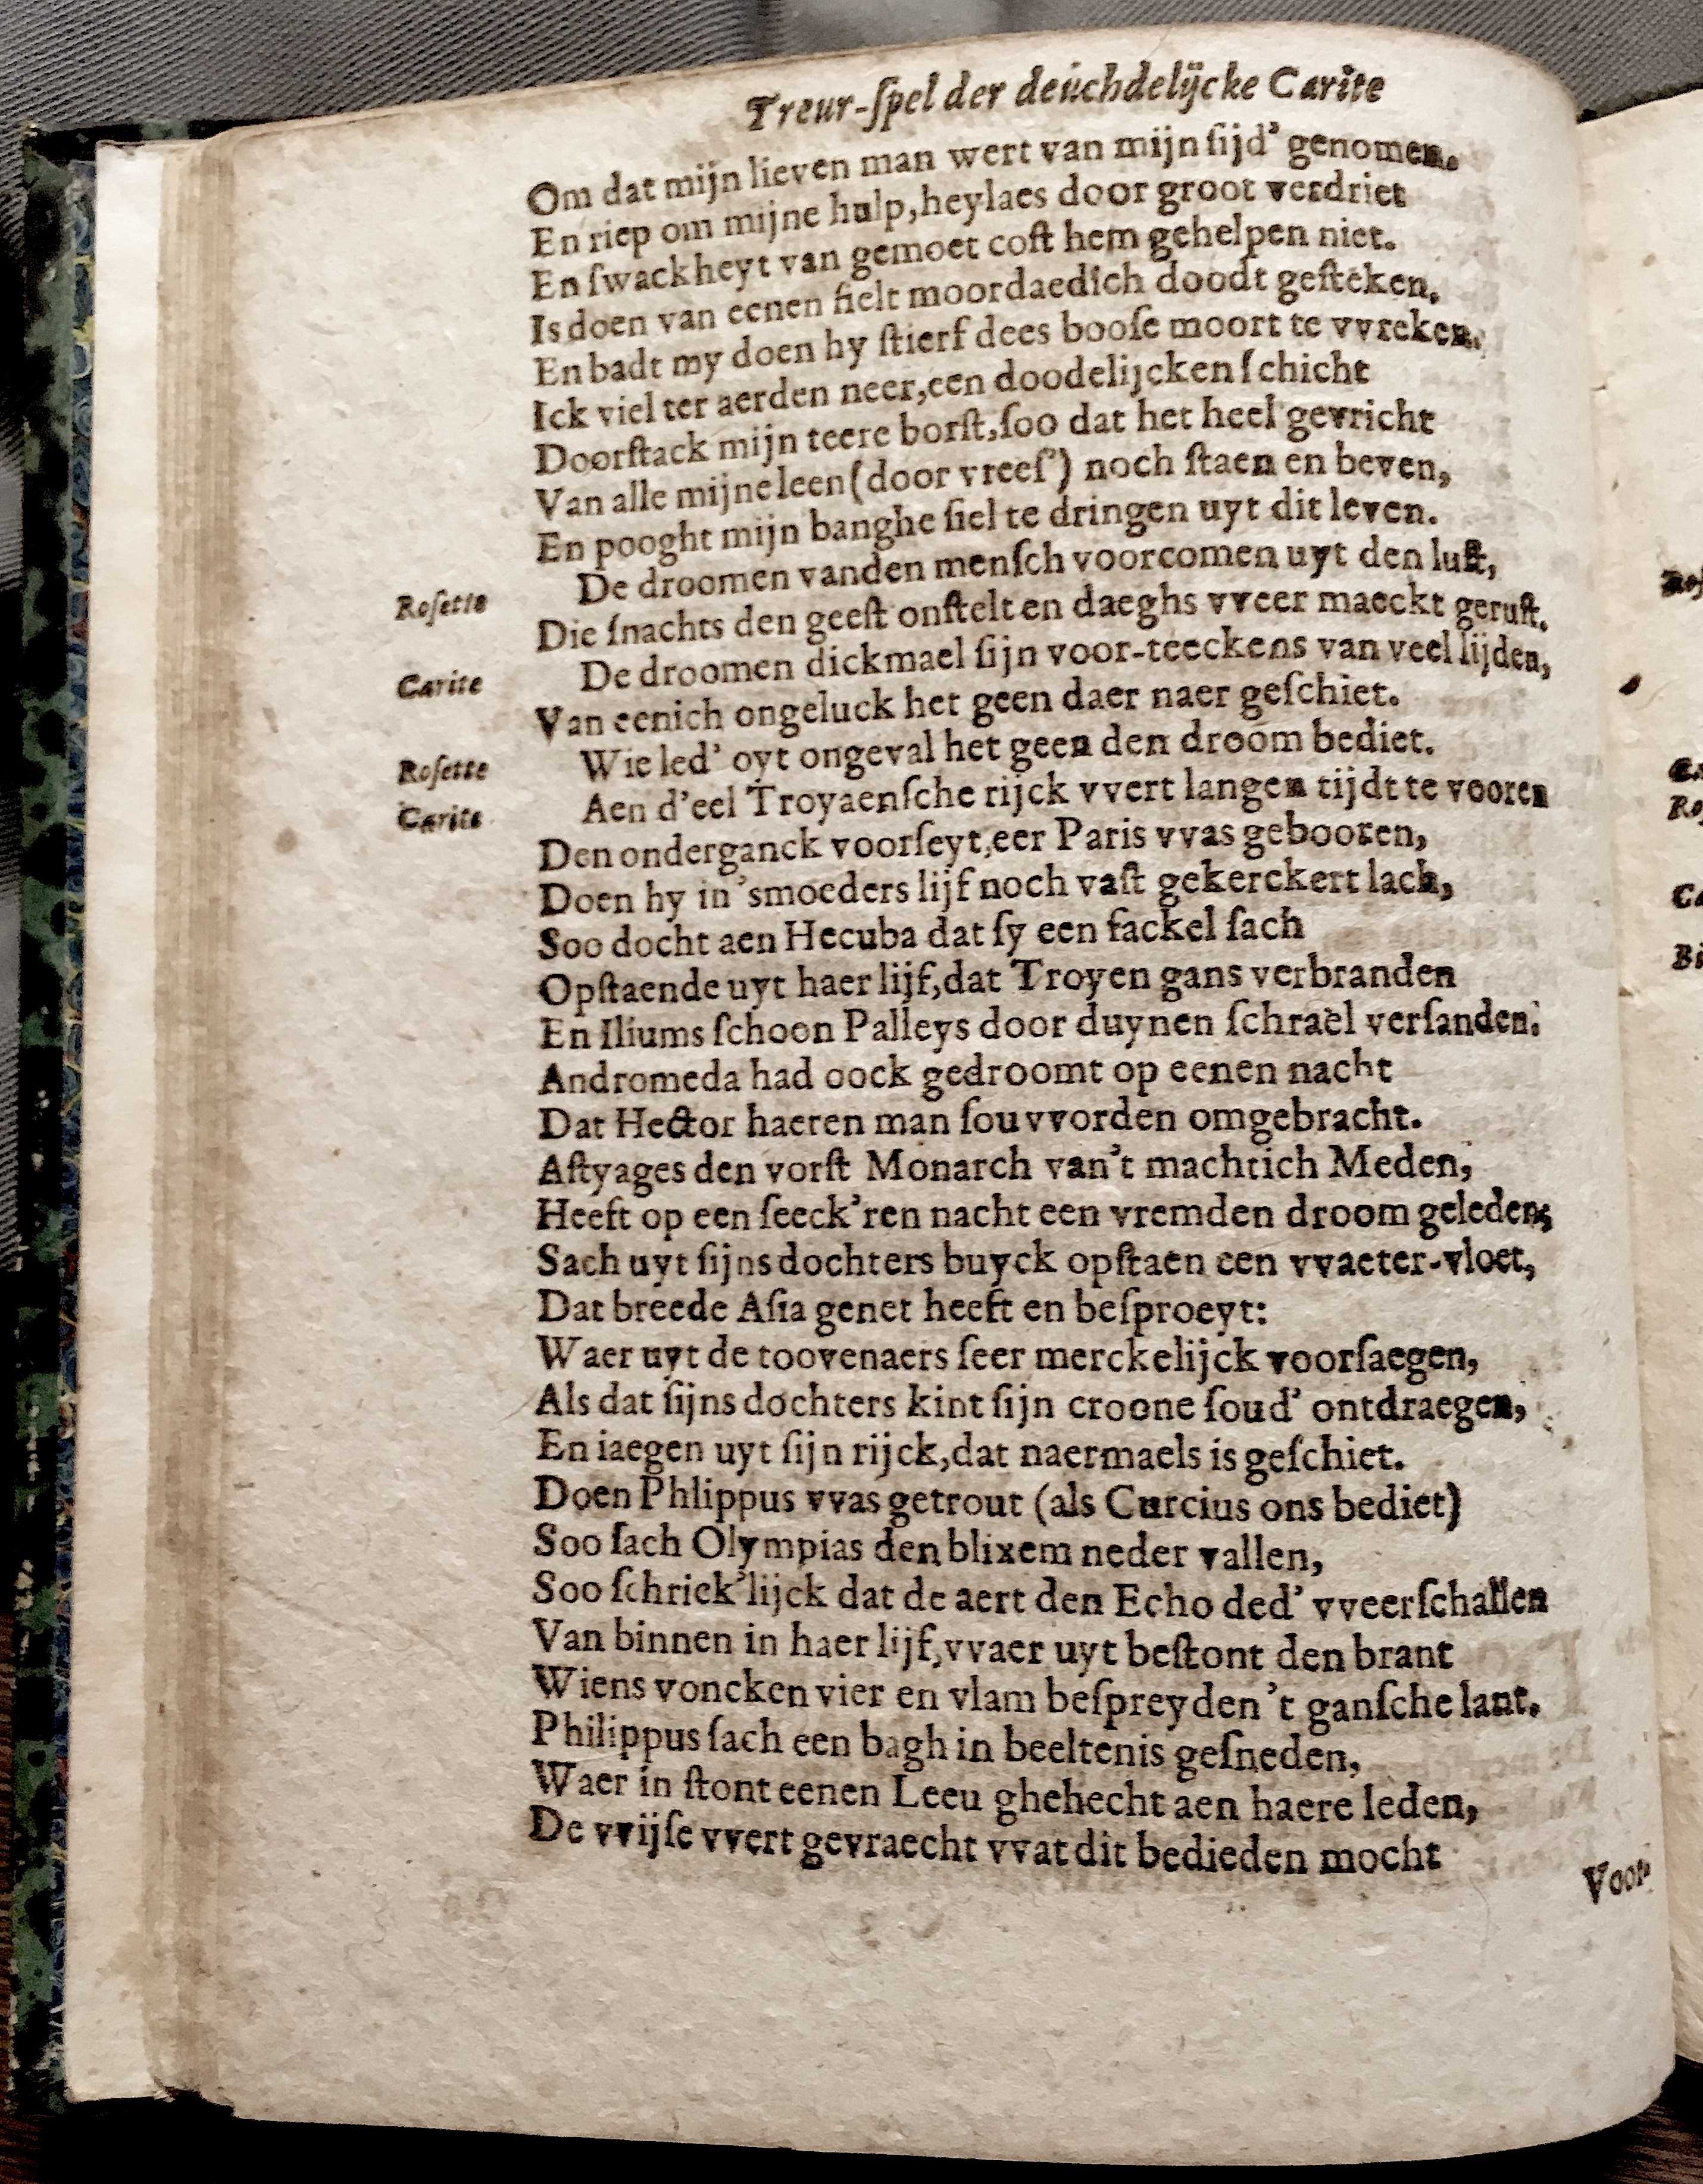 Treur-ſpel der deuchdelijcke Carite
Om dat mijn lieven man wert van mijn ſijd' genomen.
En riep om mijne hulp, heylaes door groot verdriet
En ſwackheyt van gemoet coſt hem gehelpen niet.
Is doen van eenen fielt moordaedich doodt geſteken.
En badt my doen hy ſtierf dees booſe moort te vvreken.
Ick viel ter aerden neer, een doodelijcken ſchicht
Doorſtack mijn teere borſt, ſoo dat het heel gevricht
Van alle mijne leen (door vreeſ') noch ſtaen en beven,
En pooght mijn banghe ſiel te dringen uyt dit leven.
Roſette De droomen vanden menſch voorcomen uyt den luſt,
Die ſnachts den geeſt onſtelt en daeghs vveer maeckt geruſt.
Carite De droomen dickmael ſijn voor-teeckens van veel lijden,
Van eenich ongeluck het geen daer naer geſchiet.
Roſette Wie led' oyt ongeval het geen den droom bediet.
Carite Aen d'eel Troyaenſche rijck vvert langen tijdt te vooren
Den onderganck voorſeyt, eer Paris vvas gebooren,
Doen hy in 'smoeders lijf noch vaſt gekerckert lach,
Soo docht aen Hecuba dat ſy een fackel ſach
Opſtaende uyt haer lijf, dat Troyen gans verbranden
En Iliums ſchoon Palleys door duynen ſchrael verſanden.
Andromeda had oock gedroomt op eenen nacht
Dat Hector haeren man ſou vvorden omgebracht.
Aſtyages den vorſt Monarch van't machtich Meden,
Heeft op een ſeeck'ren nacht een vremden droom geleden;
Sach uyt ſijns dochters buyck opſtaen een vvaeter-vloet,
Dat breede Aſia genet heeft en beſproeyt:
Waer uyt de toovenaers ſeer merckelijck voorſaegen,
Als dat ſijns dochters kint ſijn croone ſoud' ontdraegen,
En iaegen uyt ſijn rijck, dat naermaels is geſchiet.
Doen Phlippus vvas getrout (als Curcius ons bediet)
Soo ſach Olympias den blixem neder vallen,
Soo ſchriek'lijck dat de aert den Echo ded' vveerſchallen
Van binnen in haer lijf, vvaer uyt beſtont den brant
Wiens voncken vier en vlam beſpreyden 't ganſche lant.
Philippus ſach een bagh in beeltenis geſneden,
Waer in ſtont eenen Leeu ghehecht aen haere leden,
De vvijſe vvert gevraecht vvat dit bedieden mocht
Voor